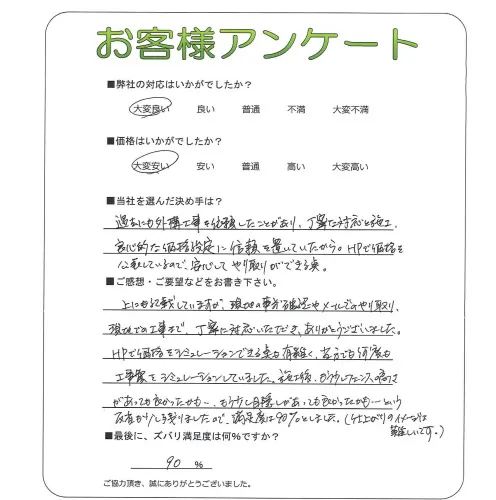 お客様アンケート
■弊社の対応はいかがでしたか？
大変良い 良い 普通 不満 大変不満
■価格はいかがでしたか？
大変安い 安い 普通 高い 大変高い
■当社を選んだ決め手は？
過去にも外構工事を依頼したことがあり、丁寧な対応と施工、
良心的な価格設定に信頼を置いていたから。HPで価格を
公表しているので、安心してやり取りができる点。
■ご感想・ご要望などをお書き下さい。
上にも記載していますが、現地の事前確認やメールでのやり取り、
現地での工事まで、丁寧に対応いただき、ありがとうございました。
HPで価格をシミュレーションできる点も有難く、何度も
工事案をシミュレーションしていました。施工後、もう少しフェンスの高さ
があっても良かったかも…、もう少し目隠しがあっても良かったかも…という
反省が少し残りましたので、満足度は90%としました。（仕上がりのイメージは
難しいです。）
■最後に、ズバリ満足度は何％ですか？
90 ％
ご協力頂き、誠にありがとうございました。